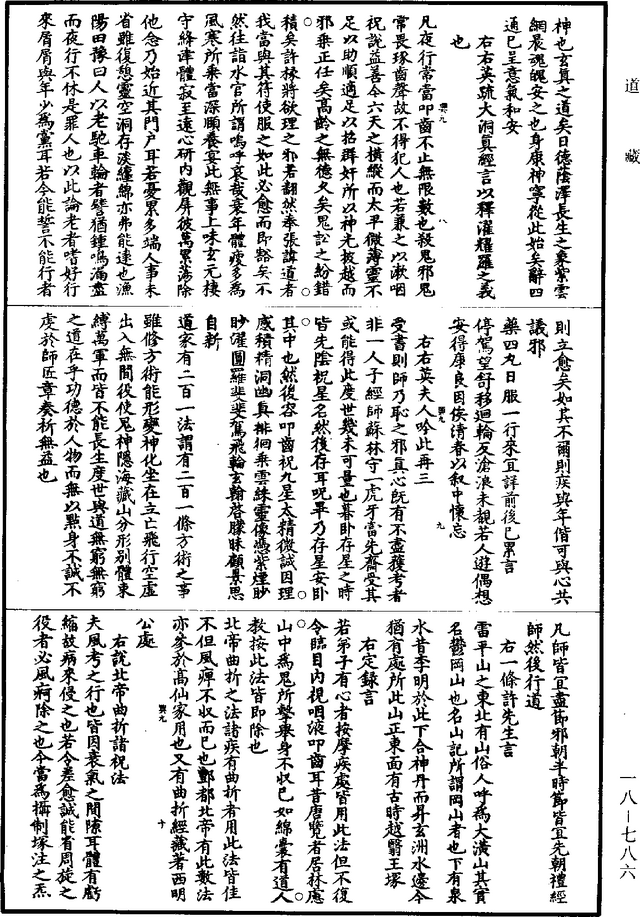 道藏
神也玄真之道矣日德陰澤長生之棗紫雲
網晨魂魄安之也身康神寧從此始矣辭四
通已呈意氣和安
右右英疏大洞真經言以釋濯耀羅之義
也
凡夜行常當叩齒不止無限數也殺鬼邪鬼
常畏琢齒聲故不得犯人也若兼之以漱咽
祝說益善今六天之橫縱而太平微薄靈不
足以助順適足以招群奸所以神光披越而
邪乘正任矣高齡之無德久矣鬼訟之紛錯
積矣許椽將欲理之邪若翻然奉張諱道者
我當與其符使服之如此必愈而即豁矣不
然往詣水官所謂嗚呼哀哉衰年體瘦多為
風寒所乘當深願養宴此無事上味玄元棲
守絳津體寂至遠心研內觀屏彼萬累蕩除
他念乃始近其門戶耳若憂累多端人事未
省雖復憩靈空洞存淡纏綿亦弗能達也漁
陽田豫曰人以老馳車輪者譬猶鍾鳴漏盡
而夜行不休是罪人也以此論老者嗜好行
來屑屑與年少為黨耳若今能誓不能行者
則立愈矣如其不爾則疾與年偕可與心共
議邪
藥四丸日服一行來宜詳前後已累言
停駕望舒移迴輪反滄浪未覩若人遊偶想
安得康良因俟清春以叙中懷忘
右右英夫人吟此再三
受書則師乃恥之邪真心既有不盡獲考者
非一人子經師蘇林守一虎牙當先齋受其
或能得此度世幾未可量也暮卧存星之時
皆先陰祝星名然後存耳呪畢乃存星安卧
其中也然後容叩齒祝九星太精微誠因理
感積精洞幽真徘徊乘雲綠靈像憑紫煙眇
眇濯圓羅斐斐駕飛輪玄翰啓朦昧顧景思
自新
道家有二百一法謂有二百一條方術之事
雖修方術能形變神化坐在立亡飛行空虛
出入無間役使鬼神隱海藏山分形別體束
縛萬軍而皆不能長生度世與道無窮無窮
之道在乎功德於人物而無以點身不誠不
虔於師匠章奏祈無益也
凡師皆宜盡節邪朝半時節皆宜先朝禮經
師然後行道
右一條許先生言
雷平山之東北有山俗人呼為大橫山其實
名鬱岡山也名山記所謂岡山者也下有泉
水昔李明於此下合神丹而昇玄洲水邊今
猶有處所此山正東面有古時越翳王塚
右定錄言
若弟子有心者按摩疾處皆用此法但不復
令臨目內視咽液叩齒耳昔唐覽者居林慮
山中為鬼所擊舉身不收已如綿囊有道人
教按此法皆即除也
北帝曲折之法諸疾有曲折者用此法皆佳
不但風痺不收而已也酆都北帝有此數法
亦參於高仙家用也又有曲折經藏著西明
公處
右說北帝曲折諸祝法
夫風考之行也皆因衰氣之間隙耳體有虧
縮故病來侵之也若今差愈誠能省周旋之
役者必風痾除之也今當為攝制塚注之炁
一八—七八六